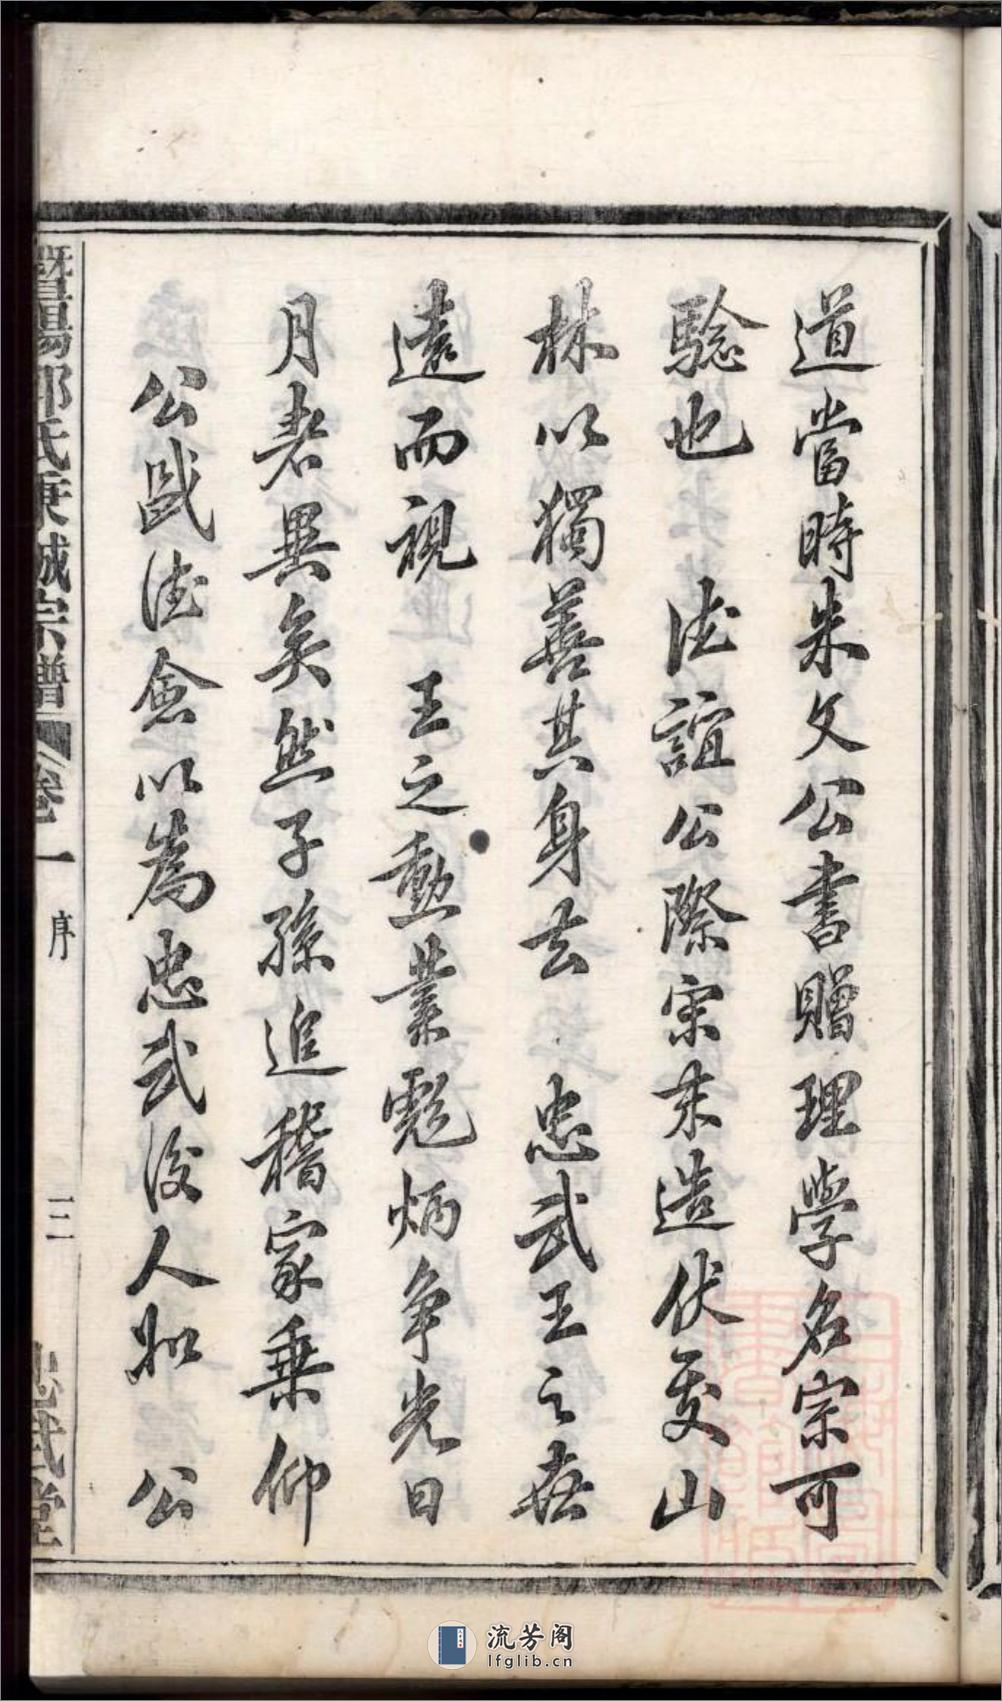 道當時朱文公書贈理學名宗可
驗也 德誼公際宋末造伏處山
林以獨善其身去 忠武王之世
遠而視 王之勳業彪炳争光日
月者異矣然子孫追稽家乗仰
公盛德僉以為忠武後人如 公
暨陽郭氏東城宗譜
卷一
序
三
忠武堂
流芳阁
lfglib.cn